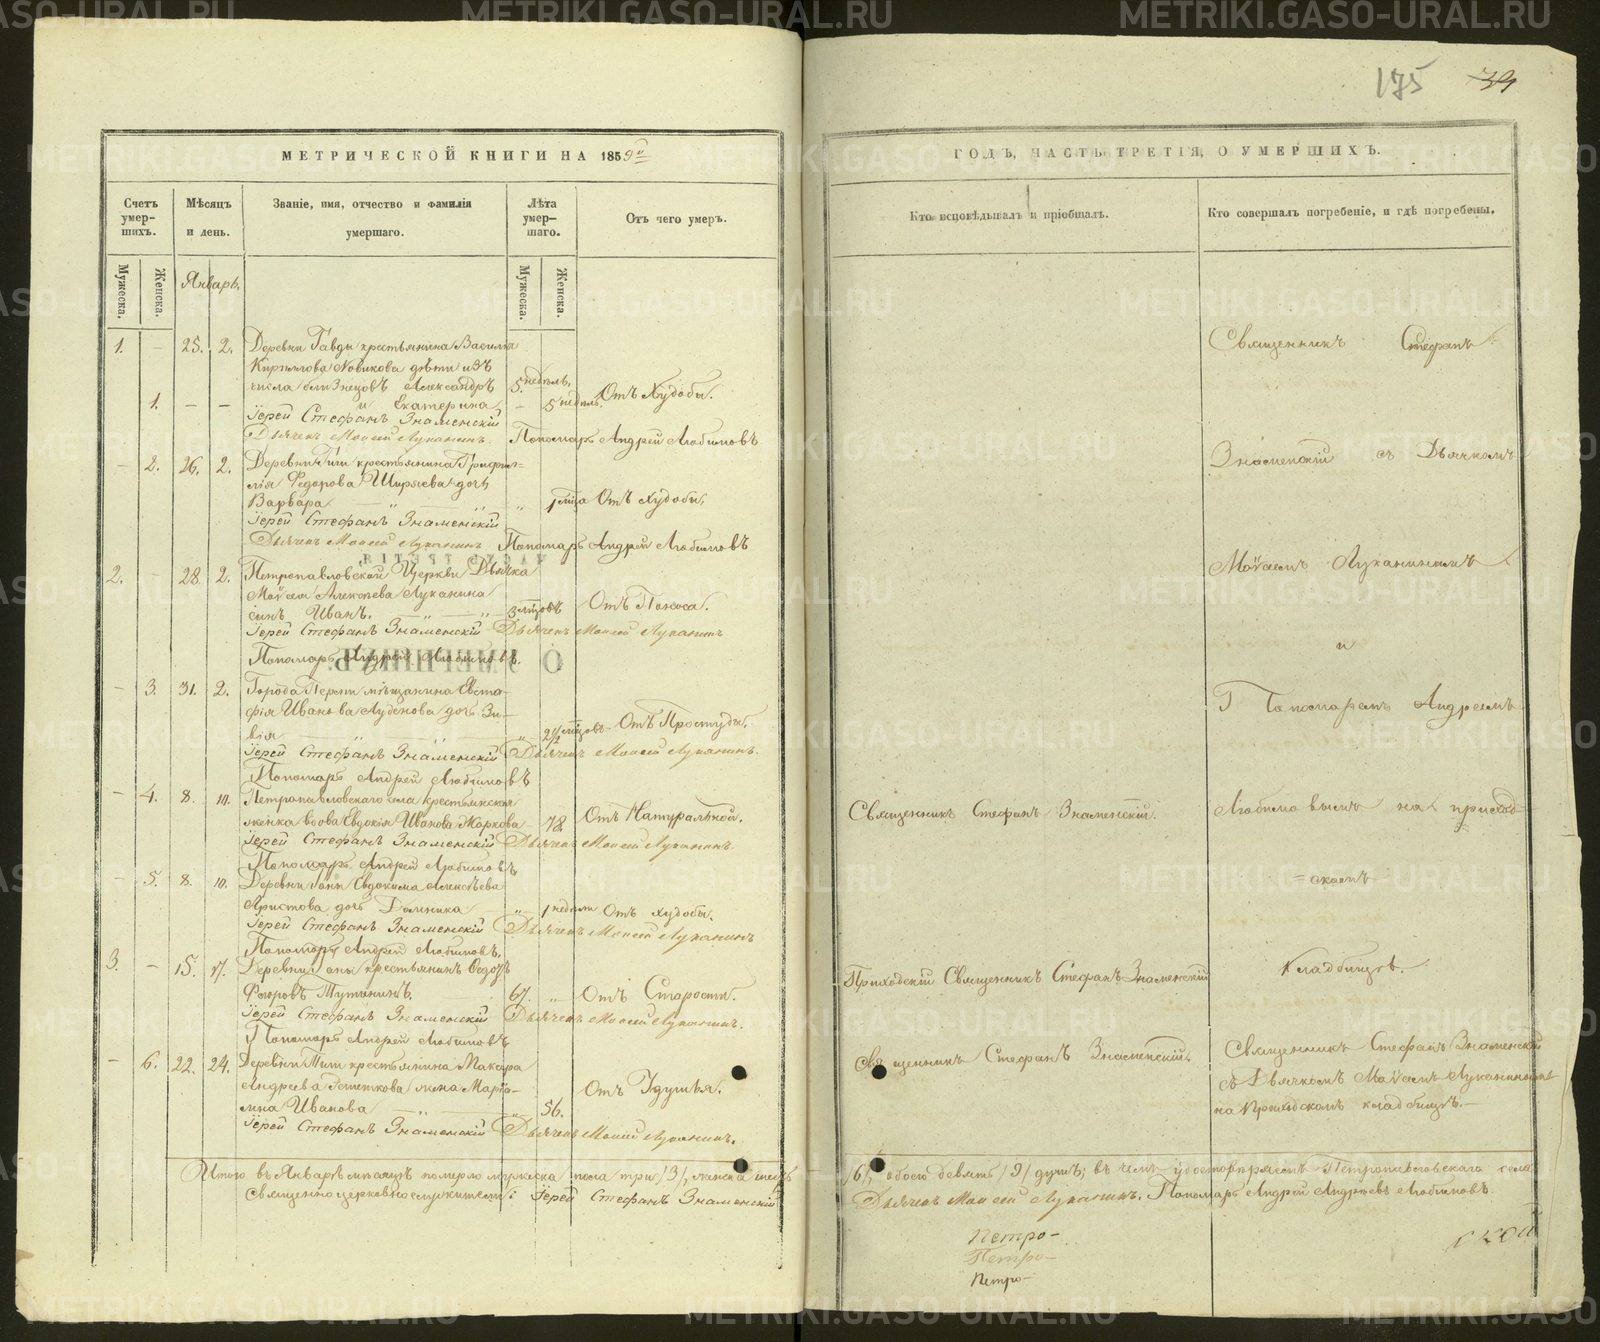 175 39
МЕТРИЧЕСКОЙ КНИГИ НА 1859й
ГОДЪ, ЧАСТЬ ТРЕТІЯ, О УМЕРШИХЪ.
Счетъ умер-шихъ.
Мужеска. Женска.
Мѣсяцъ и день.
Званіе, имя, отчество и фамилія умершаго.
Лѣта умер-шаго.
Мужеска. Женска.
Отъ чего умеръ.
Кто исповѣдывалъ и пріобщалъ.
Кто совершалъ погребеніе, и гдѣ погребены.
Январь.
1. – 25. 2. Деревни Гавды крестьянина Василія
Кирилова Новикова дѣти изъ
числа близнецовъ Александръ 5 недѣль,
1. – – и Екатерина – 5 недѣль. Отъ Худобы.
Іерей Стефанъ Знаменскій
Дьячекъ Моисей Луканинъ. Пономарь Андрей Любимовъ
– 2. 26. 2. Деревни крестьянина
Федорова Ширяева дочь
Варвара " " " 1 мѣс Отъ худобы,
Іерей Стефанъ Знаменскій
Дьячекъ Моисей Луканинъ Пономарь Андрей Любимовъ
2. – 28 2. Петропавловской Церкви Дьячка
Моѵсея Алексѣева Луканина
сынъ Иванъ. " 3 мѣсцовъ Отъ Поноса.
Іерей Стефанъ Знаменскій Дьячекъ Моисей Луканинъ
Пономарь Андрей Любимовъ.
– 3. 31. 2. Города Перми мѣщанина Евста-
фія Иванова дочь Зи-
вія " 2½ мѣсцовъ Отъ Простуды.
Іерей Стефанъ Знаменскій Дьячекъ Моисей Луканинъ.
Пономарь Андрей Любимовъ
– 4. 8. 10. Петропавловскаго села крестьянская
женка вдова Евдокія Иванова Маркова 78. Отъ Натуральной.
Іерей Стефанъ Знаменскій Дьячекъ Моисей Луканинъ.
Пономарь Андрей Любимовъ
– 5. 8. 10. Деревни Гоны Евдокима Алексѣева
Аристова дочь Домника " 1 недѣли Отъ худобы.
Іерей Стефанъ Знаменскій Дьячекъ Моисей Луканинъ
Пономарь Андрей Любимовъ.
3. – 15. 17. Деревни Гоны крестьянинъ Ѳедотъ
67. " Отъ Старости.
Іерей Стефанъ Знаменскій Дьячекъ Моисей Луканинъ.
Пономарь Андрей Любимовъ
– 6. 22. 24. Деревни крестьянина Макара
Андреева жена
Иванова " " 56. Отъ Удушья.
Іерей Стефанъ Знаменскій Дьячекъ Моисей Луканинъ.
Итого въ Январѣ мѣсяцѣ померло мужеска пола три /3/, женска шесть
Священно церковно служители: Іерей Стефанъ Знаменскій
Священникъ Стефанъ
Знаменскій съ Дьячкомъ
Моѵсеемъ Луканинымъ
и
Пономаремъ Андреемъ
Священникъ Стефанъ Знаменскій.
Любимовымъ на приход-
=скомъ
кладбищѣ.
Приходскій Священникъ Стефанъ Знаменскій
Священникъ Стефанъ Знаменскій.
Священникъ Стефанъ Знаменскій
съ Дьячкомъ Моѵсеемъ Луканинымъ
на Приходскомъ кладбищѣ.
/6/, обоего девять /9/ душъ; въ чемъ удостовѣряемъ Петропавловскаго села
Дьячекъ Моисей Луканинъ. Пономарь Андрей Андреевъ Любимовъ.
Петро-
Петро-
Петро-
ской
METRIKI.GASO-URAL.RU